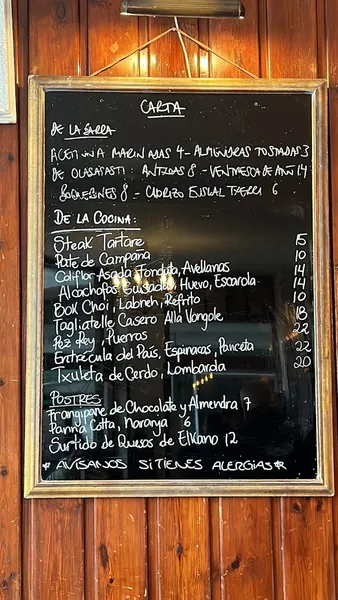 CARTA
DE LA BARRA
ACEITUNA MARINADAS 4 - ALMENDRAS TOSTADAS 3
DE OLASAGASTI: ANTXOAS 8 - VENTRESCA DE ATÚN 14
BOQUERONES 8 - CHORIZO EUSKAL TXERRI 6
DE LA COCINA:
Steak Tartare 15
Pate de Campaña 10
Coliflor Asada, Fondutta, Avellanas 14
Alcachofas Guisadas, Huevo, Escarola 14
Bok Choi, Labneh, Refrito 10
Tagliatelle Casero Alla Vongole 18
Pez Rey, Puerros 22
Entrecula del País, Espinacas, Panceta 22
Txuleta de Cerdo, Lombarda 20
POSTRES
Frangipane de Chocolate y Almendra 7
Panna Cotta, Naranja 6
Surtido de Quesos de Elkano 12
* AVÍSANOS SI TIENES ALERGIAS *